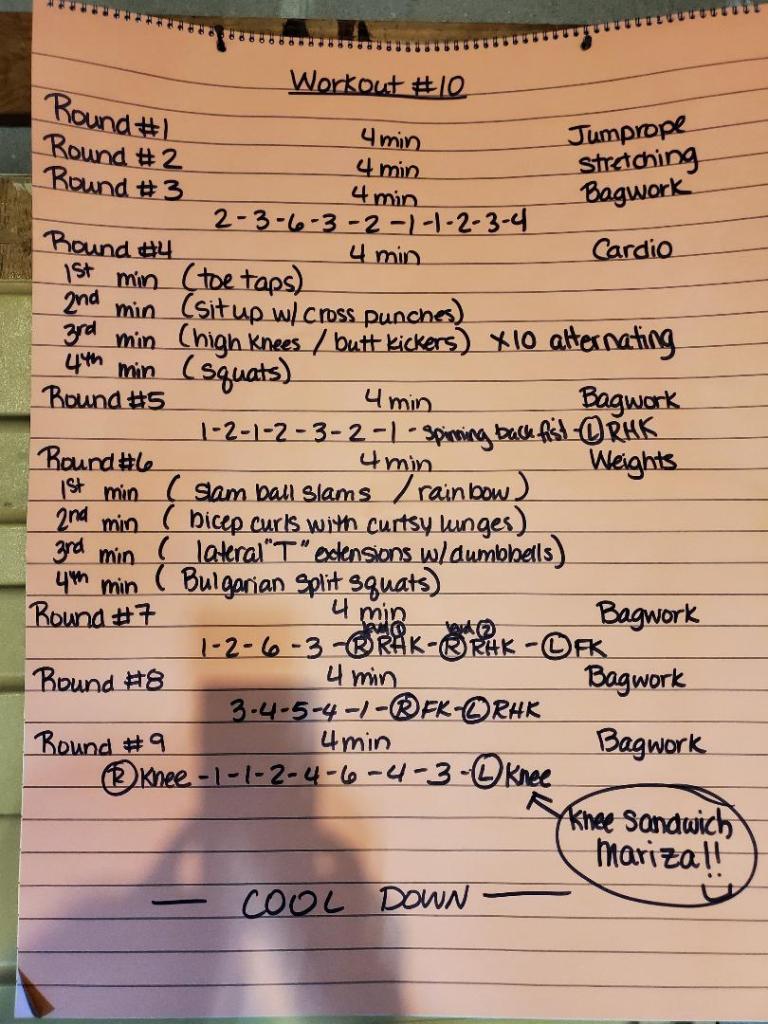 Workout #10
Round #1 4 min Jumprope
Round #2 4 min Stretching
Round #3 4 min Bagwork
2-3-6-3-2-1-1-2-3-4
Round #4 4 min Cardio
1st min (toe taps)
2nd min (sit up w/ cross punches)
3rd min (high knees / butt kickers) x10 alternating
4th min (squats)
Round #5 4 min Bagwork
1-2-1-2-3-2-1-spinning back fist-Ⓛ RHK
Round #6 4 min Weights
1st min ( slam ball slams / rainbow)
2nd min ( bicep curls with curtsy lunges)
3rd min ( lateral "T" extensions w/ dumbbells)
4th min ( Bulgarian split squats)
Round #7 4 min Bagwork
level ① level ②
1-2-6-3-Ⓡ RHK-Ⓡ RHK-Ⓛ FK
Round #8 4 min Bagwork
3-4-5-4-1-Ⓡ FK-Ⓛ RHK
Round #9 4 min Bagwork
Ⓡ Knee-1-1-2-4-6-4-3-Ⓛ Knee
Knee sandwich
Mariza!!
— COOL DOWN —